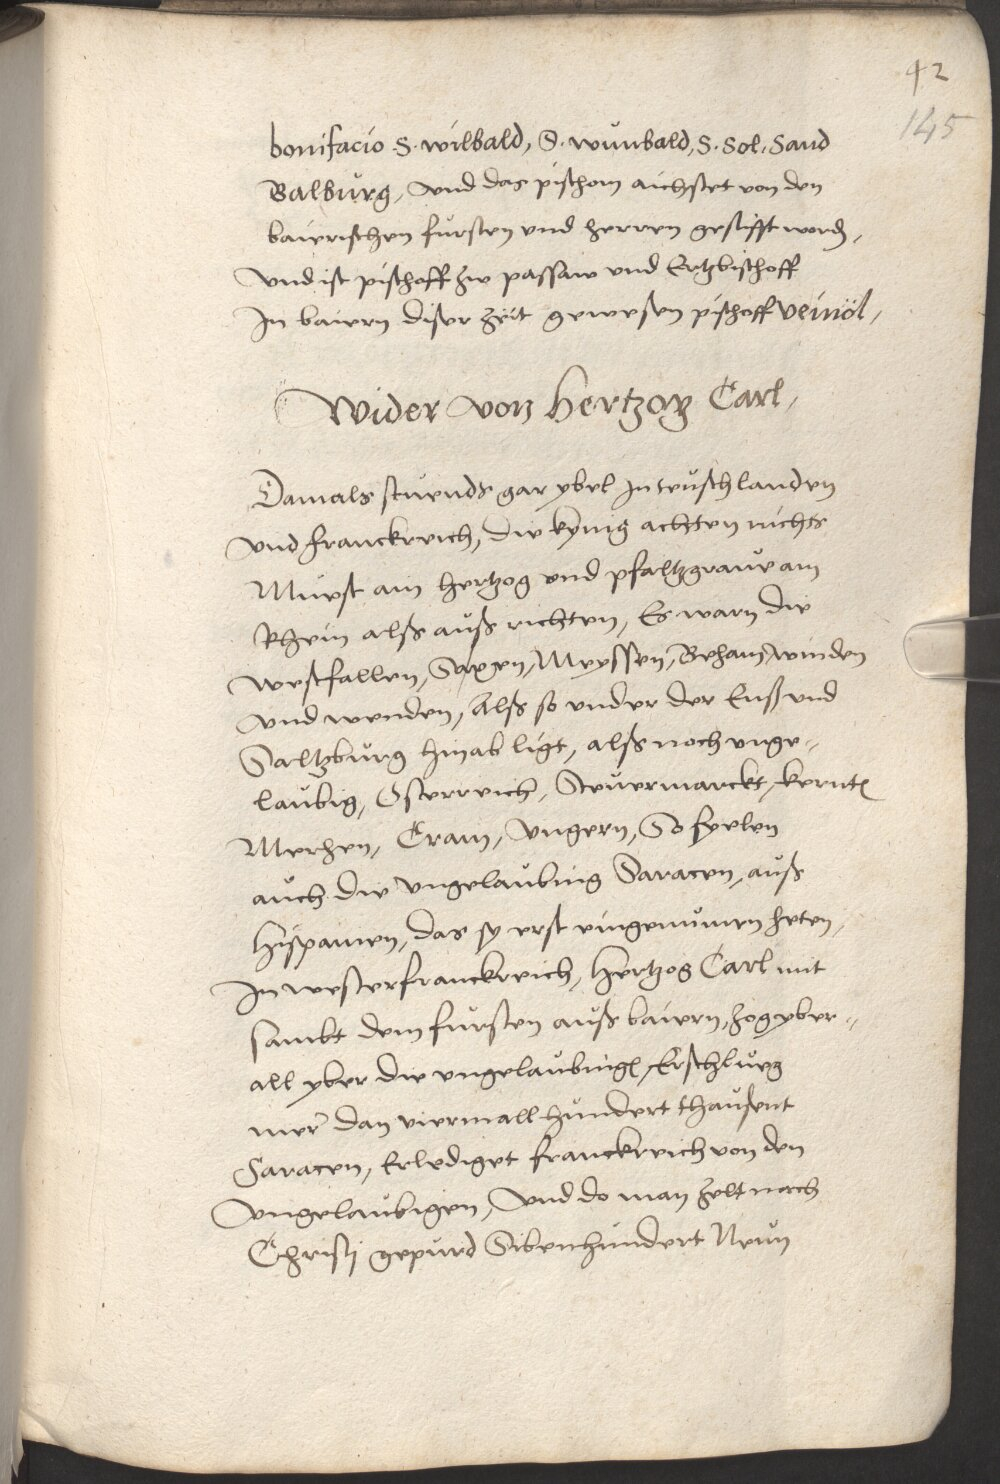 42
145
bonifacio S. wilbald, S. wunbald, S. Sol. Sand
Balburg, und das pisthom aichstet von den
bairischen fursten und herren gestifft word,
Und ist pischoff zw passaw und Ertzbischoff
In bairn diser zeit gewesen pischoff veinöl,
Wider von hertzog Carl,
Damals stuends gar ybel in teuschlanden
Und franckreich, die kynig achten nichts
Muest am hertzog und pfaltzgraue am
Rhein alß auß richten, Es warn die
westfallen, Saxen, Meyssen, Beham, winden
und wenden, Alß so under der Enß und
Saltzburg hinab ligt, alß noch unge-
laubig, Osterreich, Steuermarckt, kernt
Merhen, Crain, Ungern, So fyelen
auch die Ungelaubing Saracen, auß
hispanien, das sy erst eingenumen heten,
In westerfranckreich, hertzog Carl mit
sambt dem fursten auß bairn, zog yber-
all yber die ungelaubing, Erschlueg
mer dan viermall hundert thausent
Saracen, Erlediget franckreich von den
Ungelaubigen, Und do man zelt nach
Christj gepurd Sibenhundert Neun